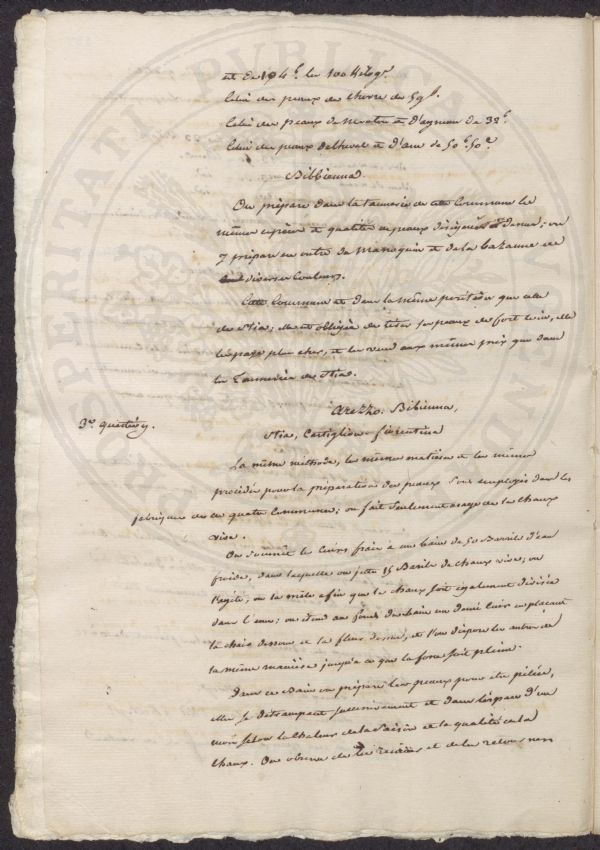 est de 104 f. les 100 Kilogr.
Celui des peaux de chevre de 59 f.
Celui des peaux de Mouton et d'agneau de 33 f.
Celui des peaux de cheval et d'ane de 50 f. 50 c.
Bibbienna.
On prépare dans la tannerie de cette Commune les
mêmes espèces et qualités de peaux désignées ; on
y prépare en outre du Maroquin et de la bazanne de
diverses Couleurs.
Cette Commune est dans la même position que celle
de Stia ; elle est obligée de tirer ses peaux de fort loin, elle
les paye plus cher, et les vend aux mêmes prix que dans
les Tanneries de Stia.
Arezzo, Bibienna,
3e. question.
Stia, Castiglion-fiorentino
La même méthode, les mêmes matières et les mêmes
procédés pour la préparation des peaux sont employés dans les
fabriques de ces quatre Communes ; on fait seulement usage de la chaux
vive.
On soumet les Cuirs frais à un bain de 50 Barils d'eau
froide, dans laquelle on jette 15 Barils de chaux vive ; on
l'agite, on la mêle afin que la chaux soit également divisée
dans l'eau ; on étend au fond du bain un demi cuir en plaçant
la chair dessous et la fleur dessus, et l'on dispose les autres de
la même manière jusqu'à ce que la fosse soit pleine.
Dans ce Bain on prépare les peaux pour être pélées,
elles se détrempent successivement et dans l'espace d'un
mois selon la Chaleur de la Saison et la qualité de la
chaux. On observe de les et de les retourner
PROSPERITATI PUBLICAE AUGENDAE